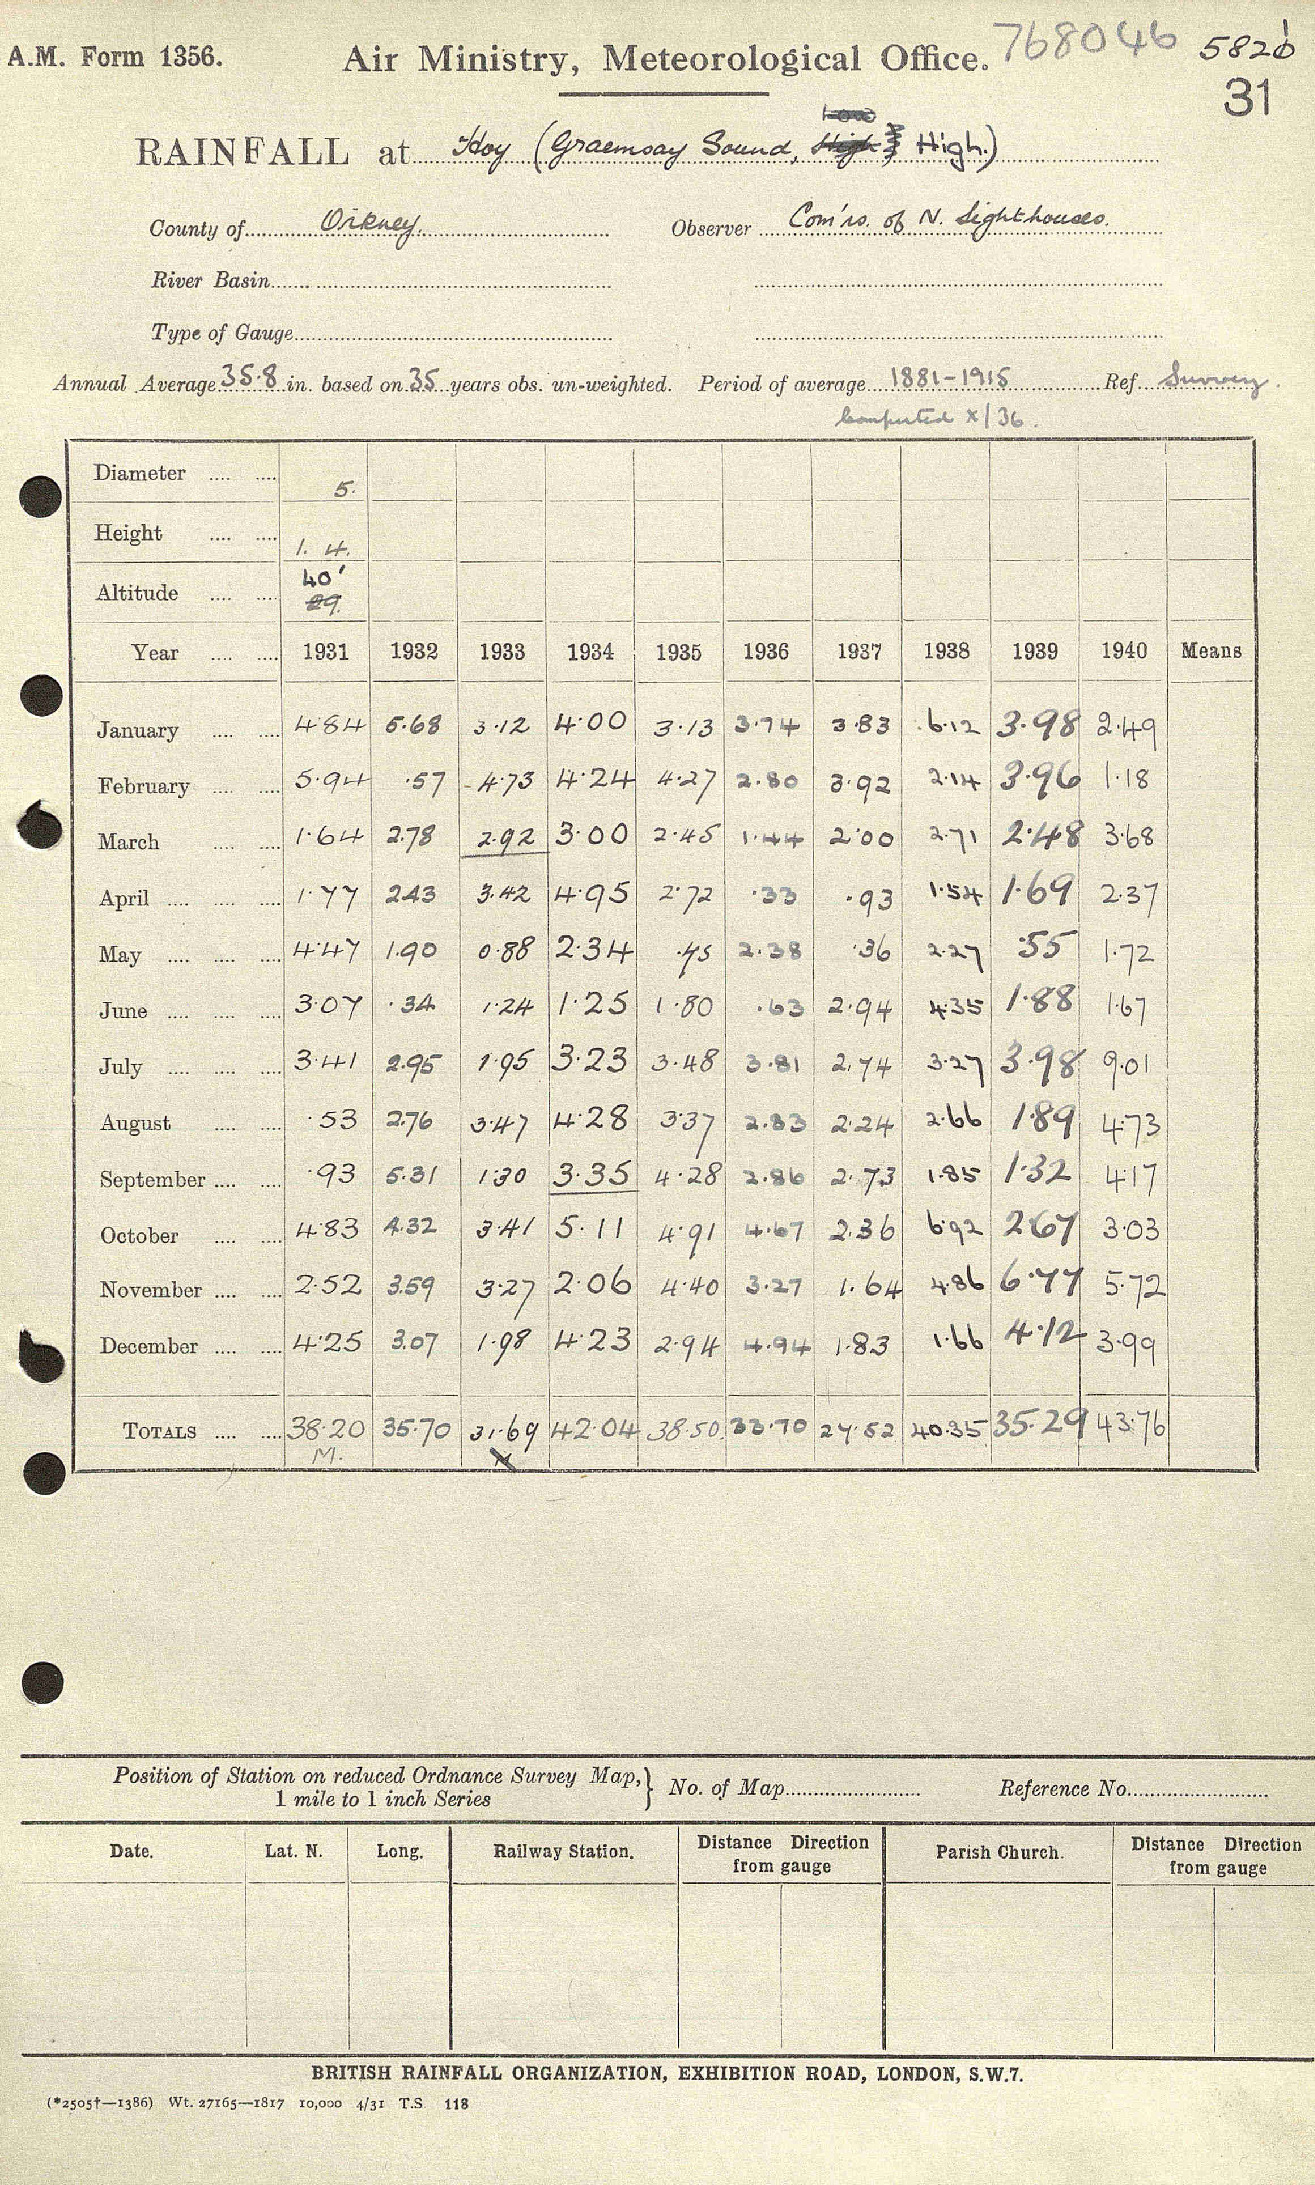 A.M. Form 1356.
Air Ministry, Meteorological Office.
768046
582b
31
RAINFALL at Hoy (Graemsay Sound, High.)
County of Orkney. Observer Com'rs. of N. Lighthouses.
River Basin
Type of Gauge
Annual Average 35·8 in. based on 35 years obs. un-weighted. Period of average 1881-1915 Ref. Survey.
Computed X/36.
Diameter 5.
Height 1. 4.
Altitude 40'
29.
Year 1931 1932 1933 1934 1935 1936 1937 1938 1939 1940 Means
January 4·84 5·68 3·12 4·00 3·13 3·74 3·83 6·12 3·98 2·49
February 5·94 ·57 4·73 4·24 4·27 2·80 3·92 2·14 3·96 1·18
March 1·64 2·78 2·92 3·00 2·45 1·44 2·00 2·71 2·48 3·68
April 1·77 2·43 3·42 4·95 2·72 ·33 ·93 1·54 1·69 2·37
May 4·47 1·90 0·88 2·34 ·75 2·38 ·36 2·27 ·55 1·72
June 3·07 ·34 1·24 1·25 1·80 ·63 2·94 4·35 1·88 1·67
July 3·41 2·95 1·95 3·23 3·48 3·81 2·74 3·27 3·98 9·01
August ·53 2·76 3·47 4·28 3·37 2·83 2·24 2·66 1·89 4·73
September ·93 5·31 1·30 3·35 4·28 2·86 2·73 1·85 1·32 4·17
October 4·83 4·32 3·41 5·11 4·91 4·67 2·36 6·92 2·67 3·03
November 2·52 3·59 3·27 2·06 4·40 3·27 1·64 4·86 6·77 5·72
December 4·25 3·07 1·98 4·23 2·94 4·94 1·83 1·66 4·12 3·99
TOTALS 38·20 35·70 31·69 42·04 38·50 33·70 27·52 40·35 35·29 43·76
M.
Position of Station on reduced Ordnance Survey Map, 1 mile to 1 inch Series } No. of Map Reference No.
Date. Lat. N. Long. Railway Station. Distance Direction from gauge Parish Church. Distance Direction from gauge
BRITISH RAINFALL ORGANIZATION, EXHIBITION ROAD, LONDON, S.W.7.
(*2505†—1386) Wt. 27165—1817 10,000 4/31 T.S. 118